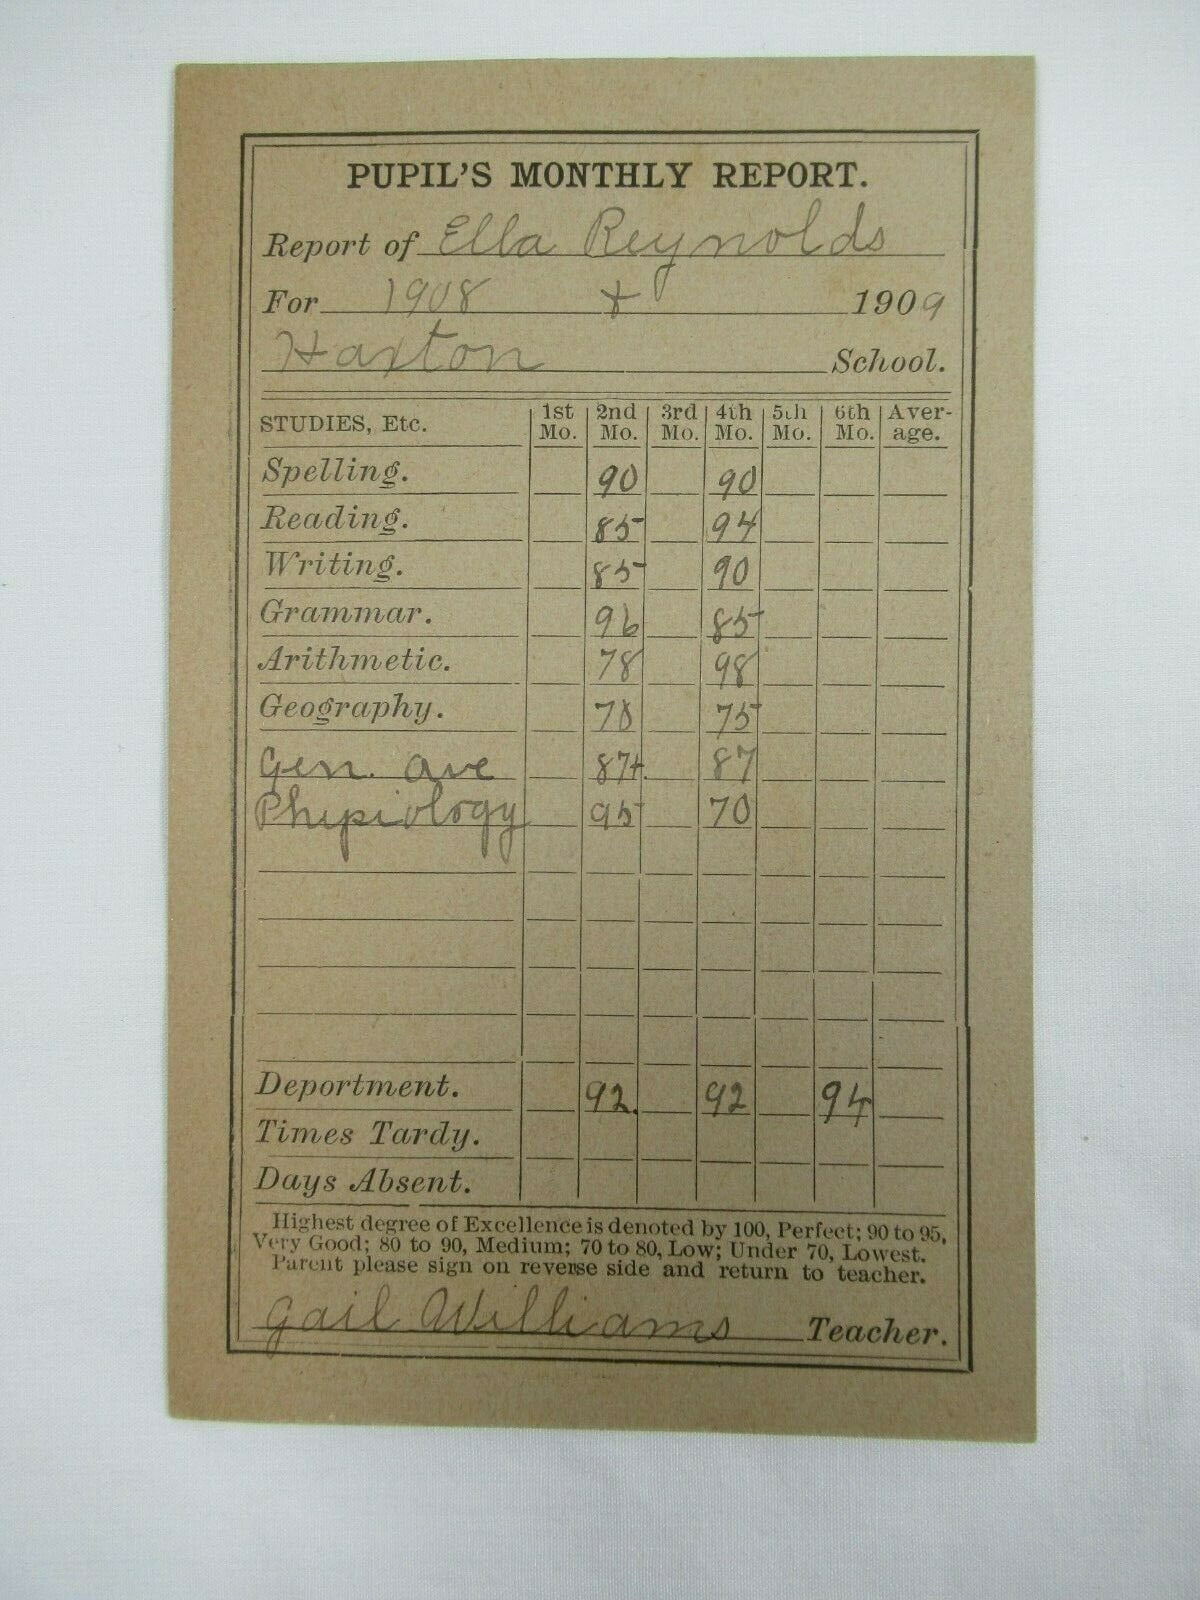 PUPIL'S MONTHLY REPORT.
Report of Ella Reynolds
For 1908 + 1909
Haxton School.
STUDIES, Etc. 1st Mo. 2nd Mo. 3rd Mo. 4th Mo. 5th Mo. 6th Mo. Average.
Spelling. 90 90
Reading. 85 94
Writing. 85 90
Grammar. 96 85
Arithmetic. 78 98
Geography. 78 75
Gen. ave 87+ 87
Physiology 95 70
Deportment. 92. 92 94
Times Tardy.
Days Absent.
Highest degree of Excellence is denoted by 100, Perfect; 90 to 95,
Very Good; 80 to 90, Medium; 70 to 80, Low; Under 70, Lowest.
Parent please sign on reverse side and return to teacher.
Gail Williams Teacher.